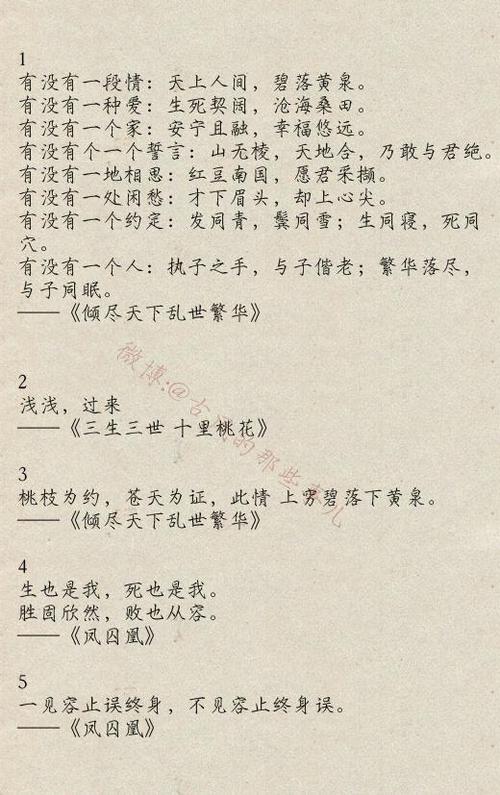 1
有没有一段情：天上人间，碧落黄泉。
有没有一种爱：生死契阔，沧海桑田。
有没有一个家：安宁且融，幸福悠远。
有没有个一个誓言：山无棱，天地合，乃敢与君绝。
有没有一地相思：红豆南国，愿君采撷。
有没有一处闲愁：才下眉头，却上心尖。
有没有一个约定：发同青，鬓同雪；生同寝，死同
穴。
有没有一个人：执子之手，与子偕老；繁华落尽，
与子同眠。
——《倾尽天下乱世繁华》
2
浅浅，过来
——《三生三世 十里桃花》
3
桃枝为约，苍天为证，此情 上穷碧落下黄泉。
——《倾尽天下乱世繁华》
4
生也是我，死也是我。
胜固欣然，败也从容。
——《凤囚凰》
5
一见容止误终身，不见容止终身误。
——《凤囚凰》
微博:@古风的那些事儿